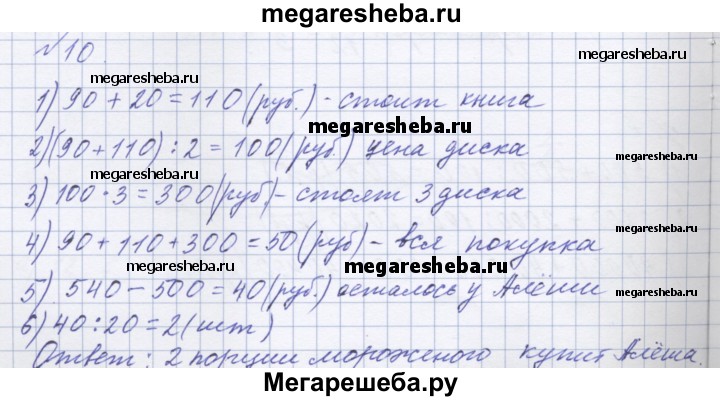 megaresheba.ru
№10.
megaresheba.ru
megaresheba.ru
1) 90 + 20 = 110 (руб.) - стоит книга
megaresheba.ru
2) (90 + 110) : 2 = 100 (руб) цена диска
megaresheba.ru
3) 100 · 3 = 300 (руб) - стоят 3 диска
megaresheba.ru
4) 90 + 110 + 300 = 50 (руб) - вся покупка
megaresheba.ru
megaresheba.ru
5) 540 - 500 = 40 (руб.) осталось у Алёши
megaresheba.ru
6) 40 : 20 = 2 (шт)
Ответ: 2 порции мороженого купит Алёша.
Мегарешеба.ру